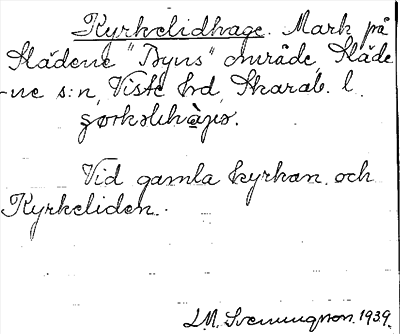 Kyrkelidhage. Mark på
Slädene "Byns" område, Släde
-ne s:n, Viste hd, Skarab. l.

Vid gamla kyrkan och
Kyrkeliden.
L.M. Svenungson. 1939.